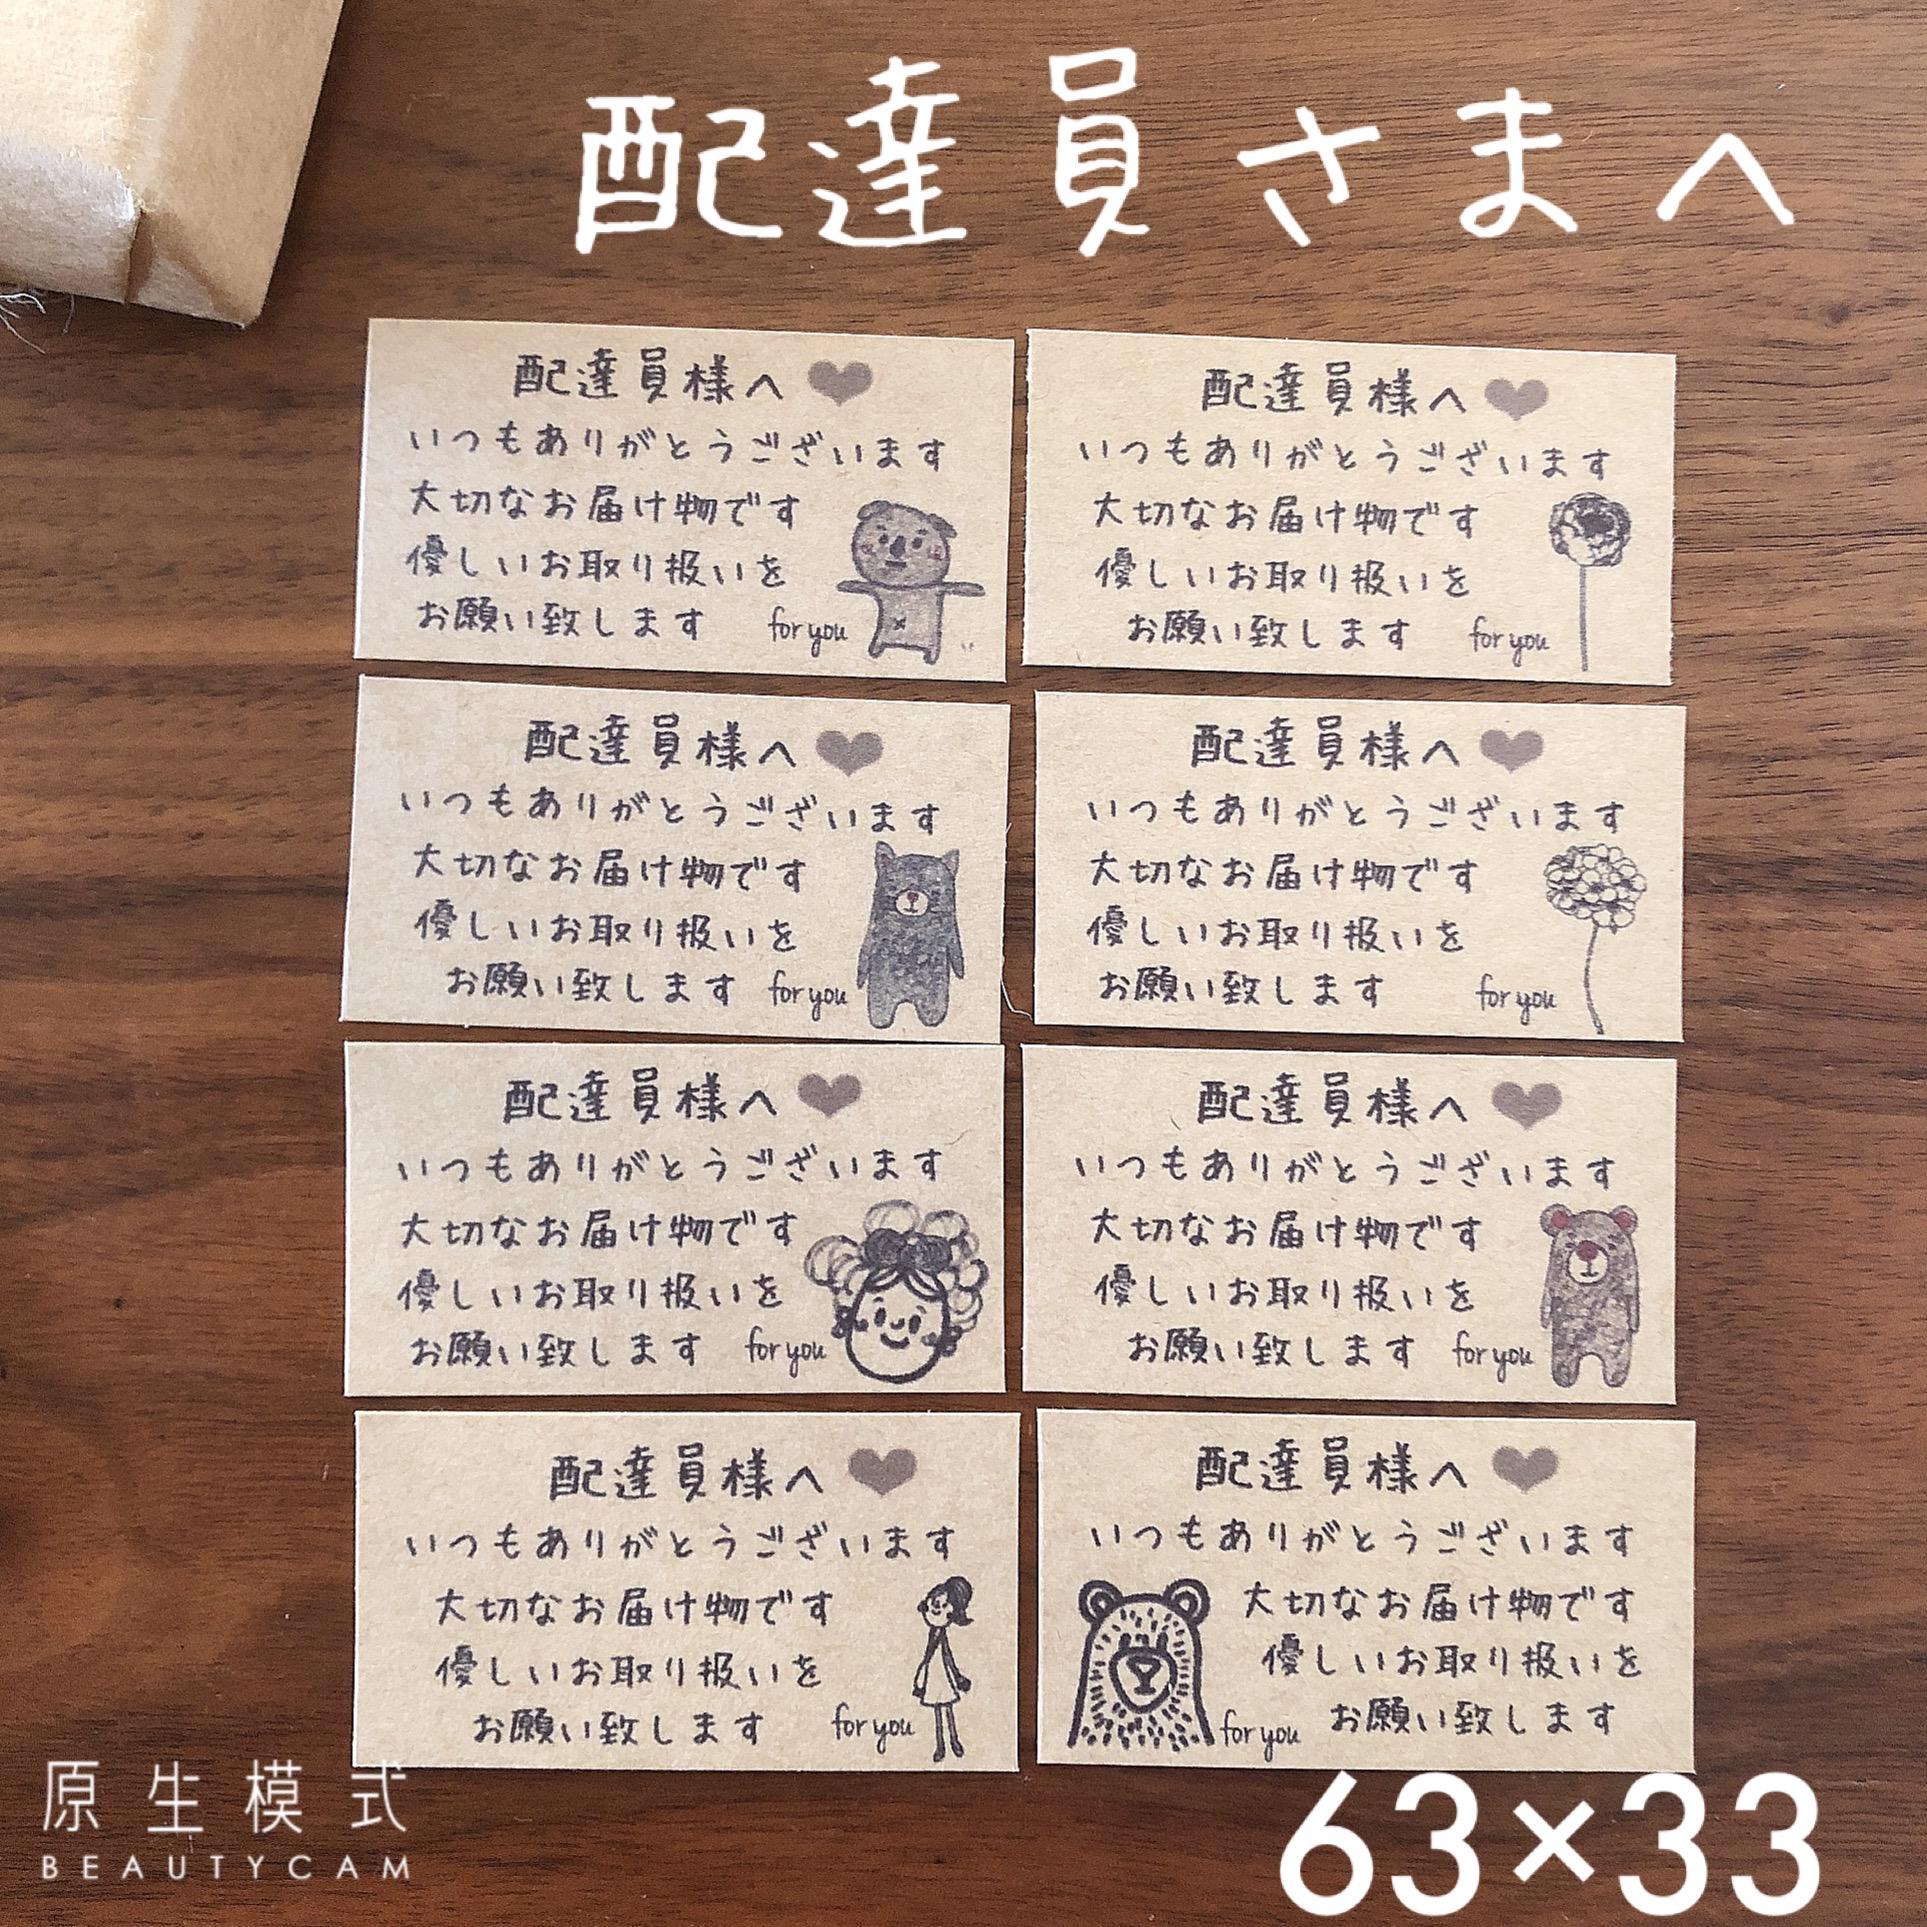 配達員さまへ
配達員様へ
いつもありがとうございます
大切なお届け物です
優しいお取り扱いを
お願い致します for you
配達員様へ
いつもありがとうございます
大切なお届け物です
優しいお取り扱いを
お願い致します for you
配達員様へ
いつもありがとうございます
大切なお届け物です
優しいお取り扱いを
お願い致します for you
配達員様へ
いつもありがとうございます
大切なお届け物です
優しいお取り扱いを
お願い致します for you
配達員様へ
いつもありがとうございます
大切なお届け物です
優しいお取り扱いを
お願い致します for you
配達員様へ
いつもありがとうございます
大切なお届け物です
優しいお取り扱いを
お願い致します for you
配達員様へ
いつもありがとうございます
大切なお届け物です
優しいお取り扱いを
お願い致します for you
配達員様へ
いつもありがとうございます
大切なお届け物です
優しいお取り扱いを
for you お願い致します
原生模式
BEAUTYCAM
63×33